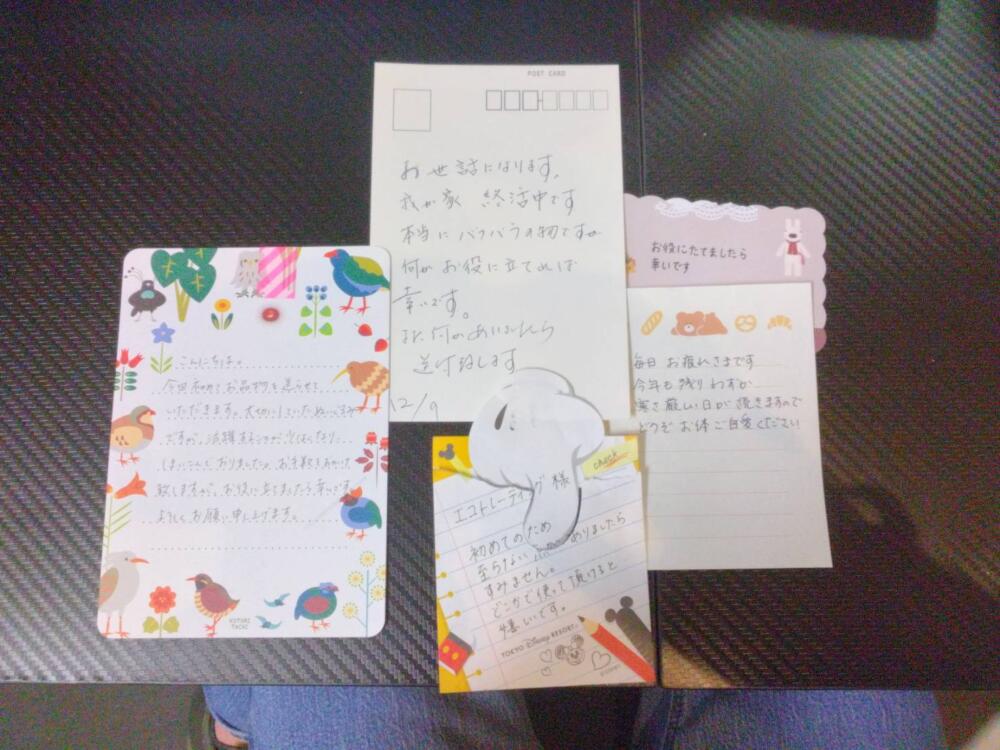 POST CARD
お世話になります。
我が家 終活中です
本当にバラバラの物ですが
何かお役に立てれば
幸いです。
また何かありましたら
送付致します
12/9
こんにちは。
今回初めてお品物を送らせて
いただきます。大切にしていたぬいぐるみ
ですが、
しまいこんでおりました。お手数をおかけ
致しますが、お役に立ちましたら幸いです。
よろしくお願い申し上げます。
お役にたてましたら
幸いです
毎日 お疲れさまです
今年も残りわずか
寒さ厳しい日が続きますので
どうぞ お体ご自愛ください
check
エコトレーディング様
初めてのため
至らない点ありましたら
すみません。
どこかで使って頂けると
嬉しいです。
TOKYO Disney RESORT